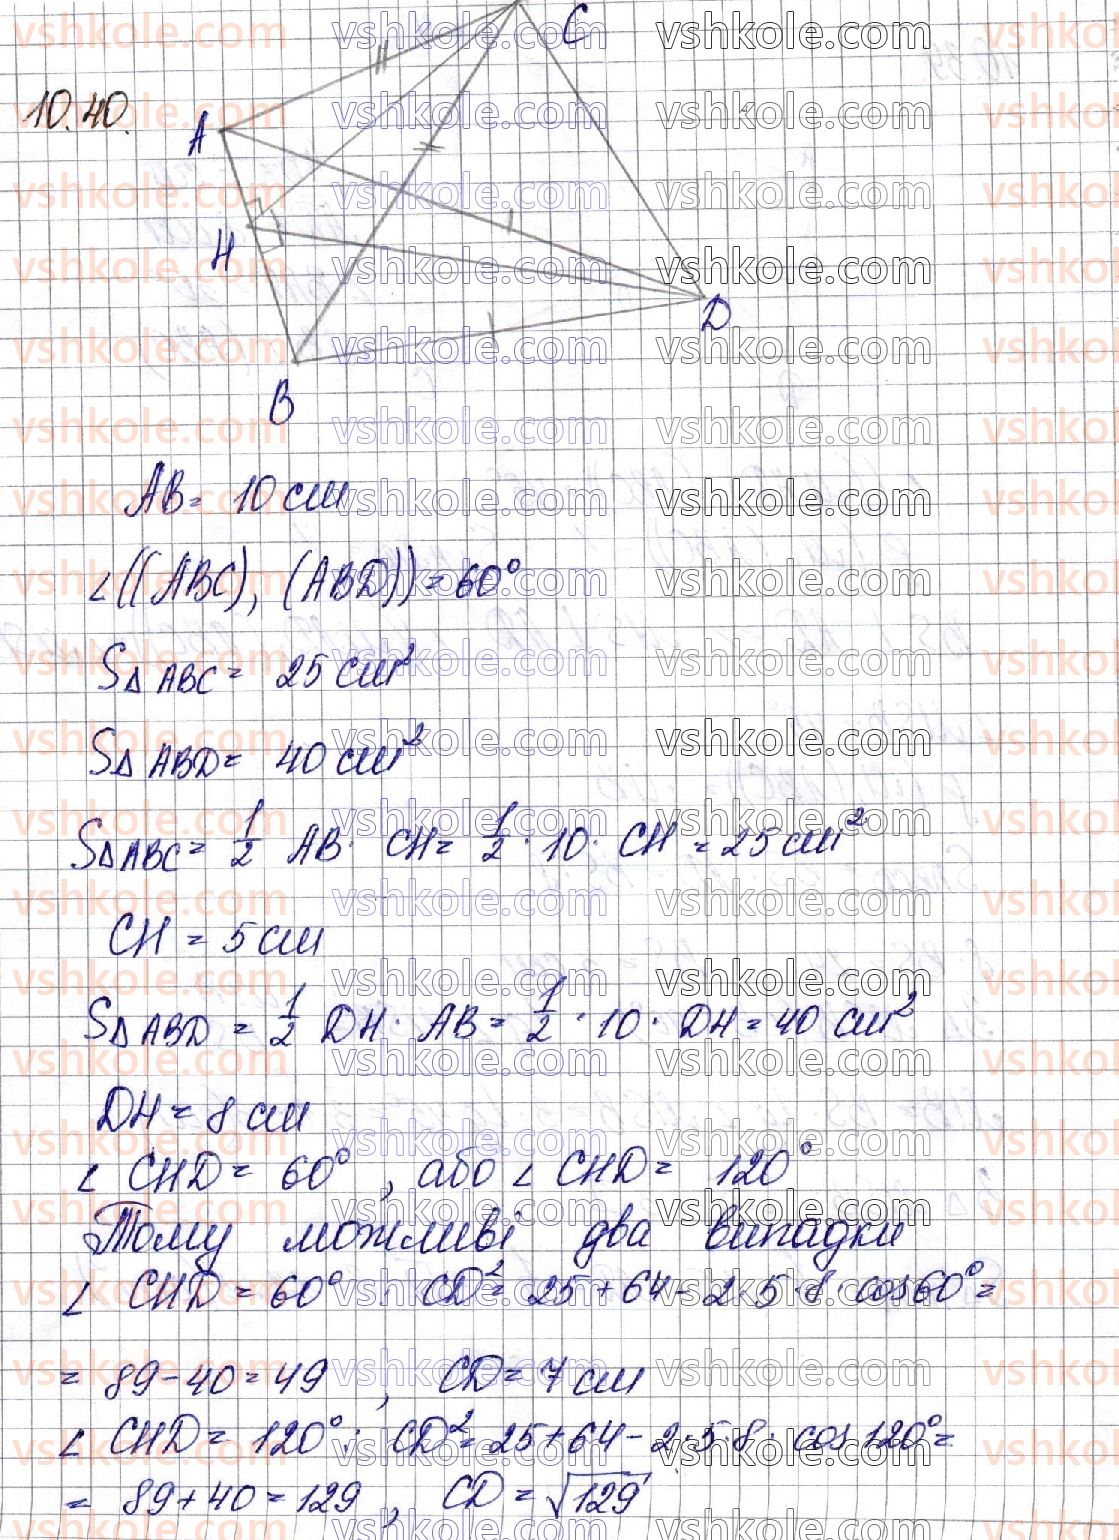 10.40.
C
A
H
D
B
AB = 10 см
∠((ABC), (ABD)) = 60°
S△ABC = 25 см²
S△ABD = 40 см²
S△ABC = 1/2 AB · CH = 1/2 · 10 · CH = 25 см²
CH = 5 см
S△ABD = 1/2 DH · AB = 1/2 · 10 · DH = 40 см²
DH = 8 см
∠ CHD = 60°, або ∠ CHD = 120°
Тому можливі два випадки
∠ CHD = 60° : CD² = 25 + 64 - 2 · 5 · 8 · cos 60° =
= 89 - 40 = 49 , CD = 7 см
∠ CHD = 120° : CD² = 25 + 64 - 2 · 5 · 8 · cos 120° =
= 89 + 40 = 129 , CD = √129
vshkole.com